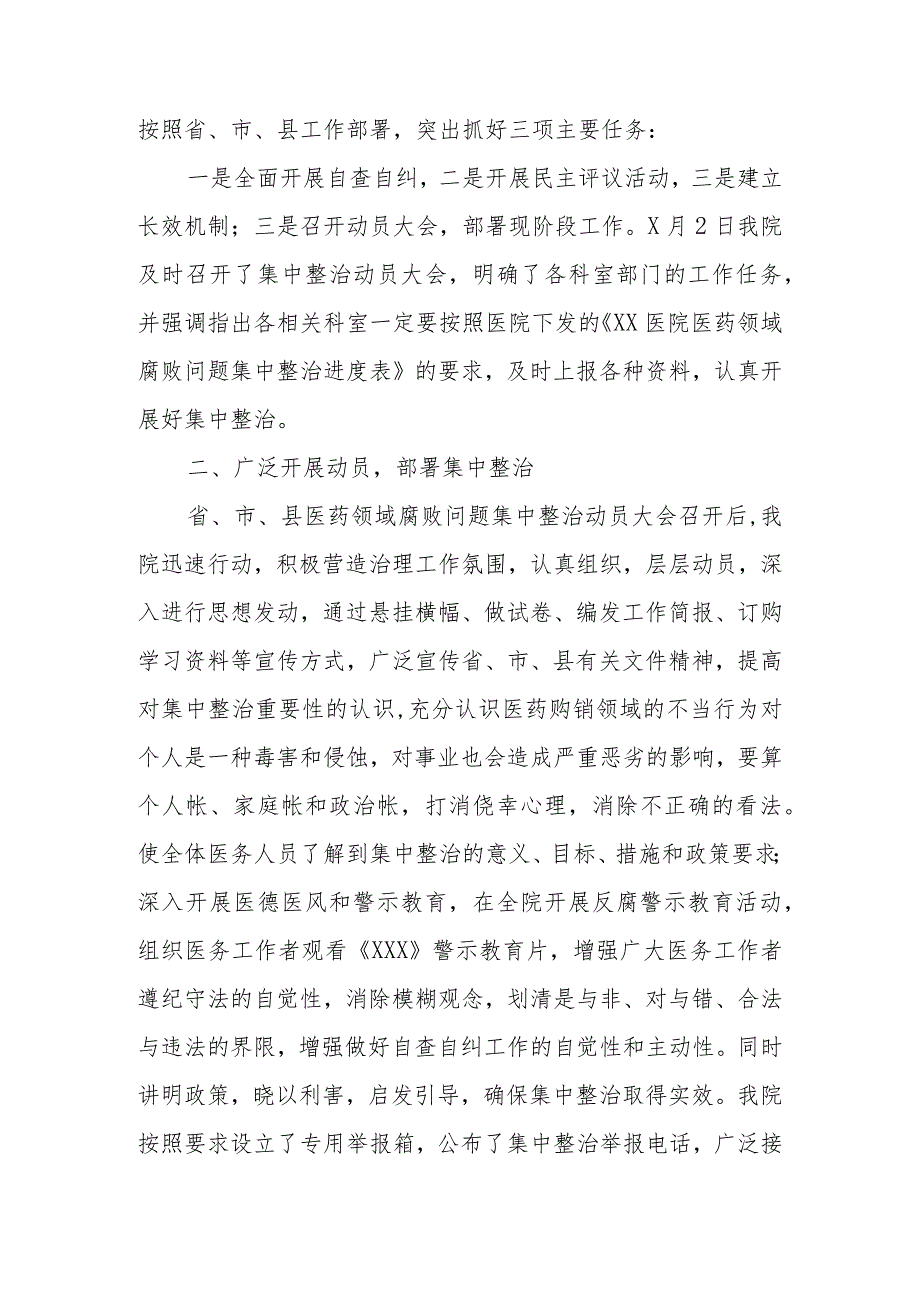 按照省、市、县工作部署，突出抓好三项主要任务：
一是全面开展自查自纠，二是开展民主评议活动，三是建立
长效机制；三是召开动员大会，部署现阶段工作。X月2日我院
及时召开了集中整治动员大会，明确了各科室部门的工作任务，
并强调指出各相关科室一定要按照医院下发的《XX医院医药领域
腐败问题集中整治进度表》的要求，及时上报各种资料，认真开
展好集中整治。
二、广泛开展动员，部署集中整治
省、市、县医药领域腐败问题集中整治动员大会召开后,我
院迅速行动，积极营造治理工作氛围，认真组织，层层动员，深
入进行思想发动，通过悬挂横幅、做试卷、编发工作简报、订购
学习资料等宣传方式，广泛宣传省、市、县有关文件精神，提高
对集中整治重要性的认识,充分认识医药购销领域的不当行为对
个人是一种毒害和侵蚀，对事业也会造成严重恶劣的影响，要算
个人帐、家庭帐和政治帐，打消侥幸心理，消除不正确的看法。
使全体医务人员了解到集中整治的意义、目标、措施和政策要求；
深入开展医德医风和警示教育，在全院开展反腐警示教育活动，
组织医务工作者观看《XXX》警示教育片，增强广大医务工作者
遵纪守法的自觉性，消除模糊观念，划清是与非、对与错、合法
与违法的界限，增强做好自查自纠工作的自觉性和主动性。同时
讲明政策，晓以利害，启发引导，确保集中整治取得实效。我院
按照要求设立了专用举报箱，公布了集中整治举报电话，广泛接